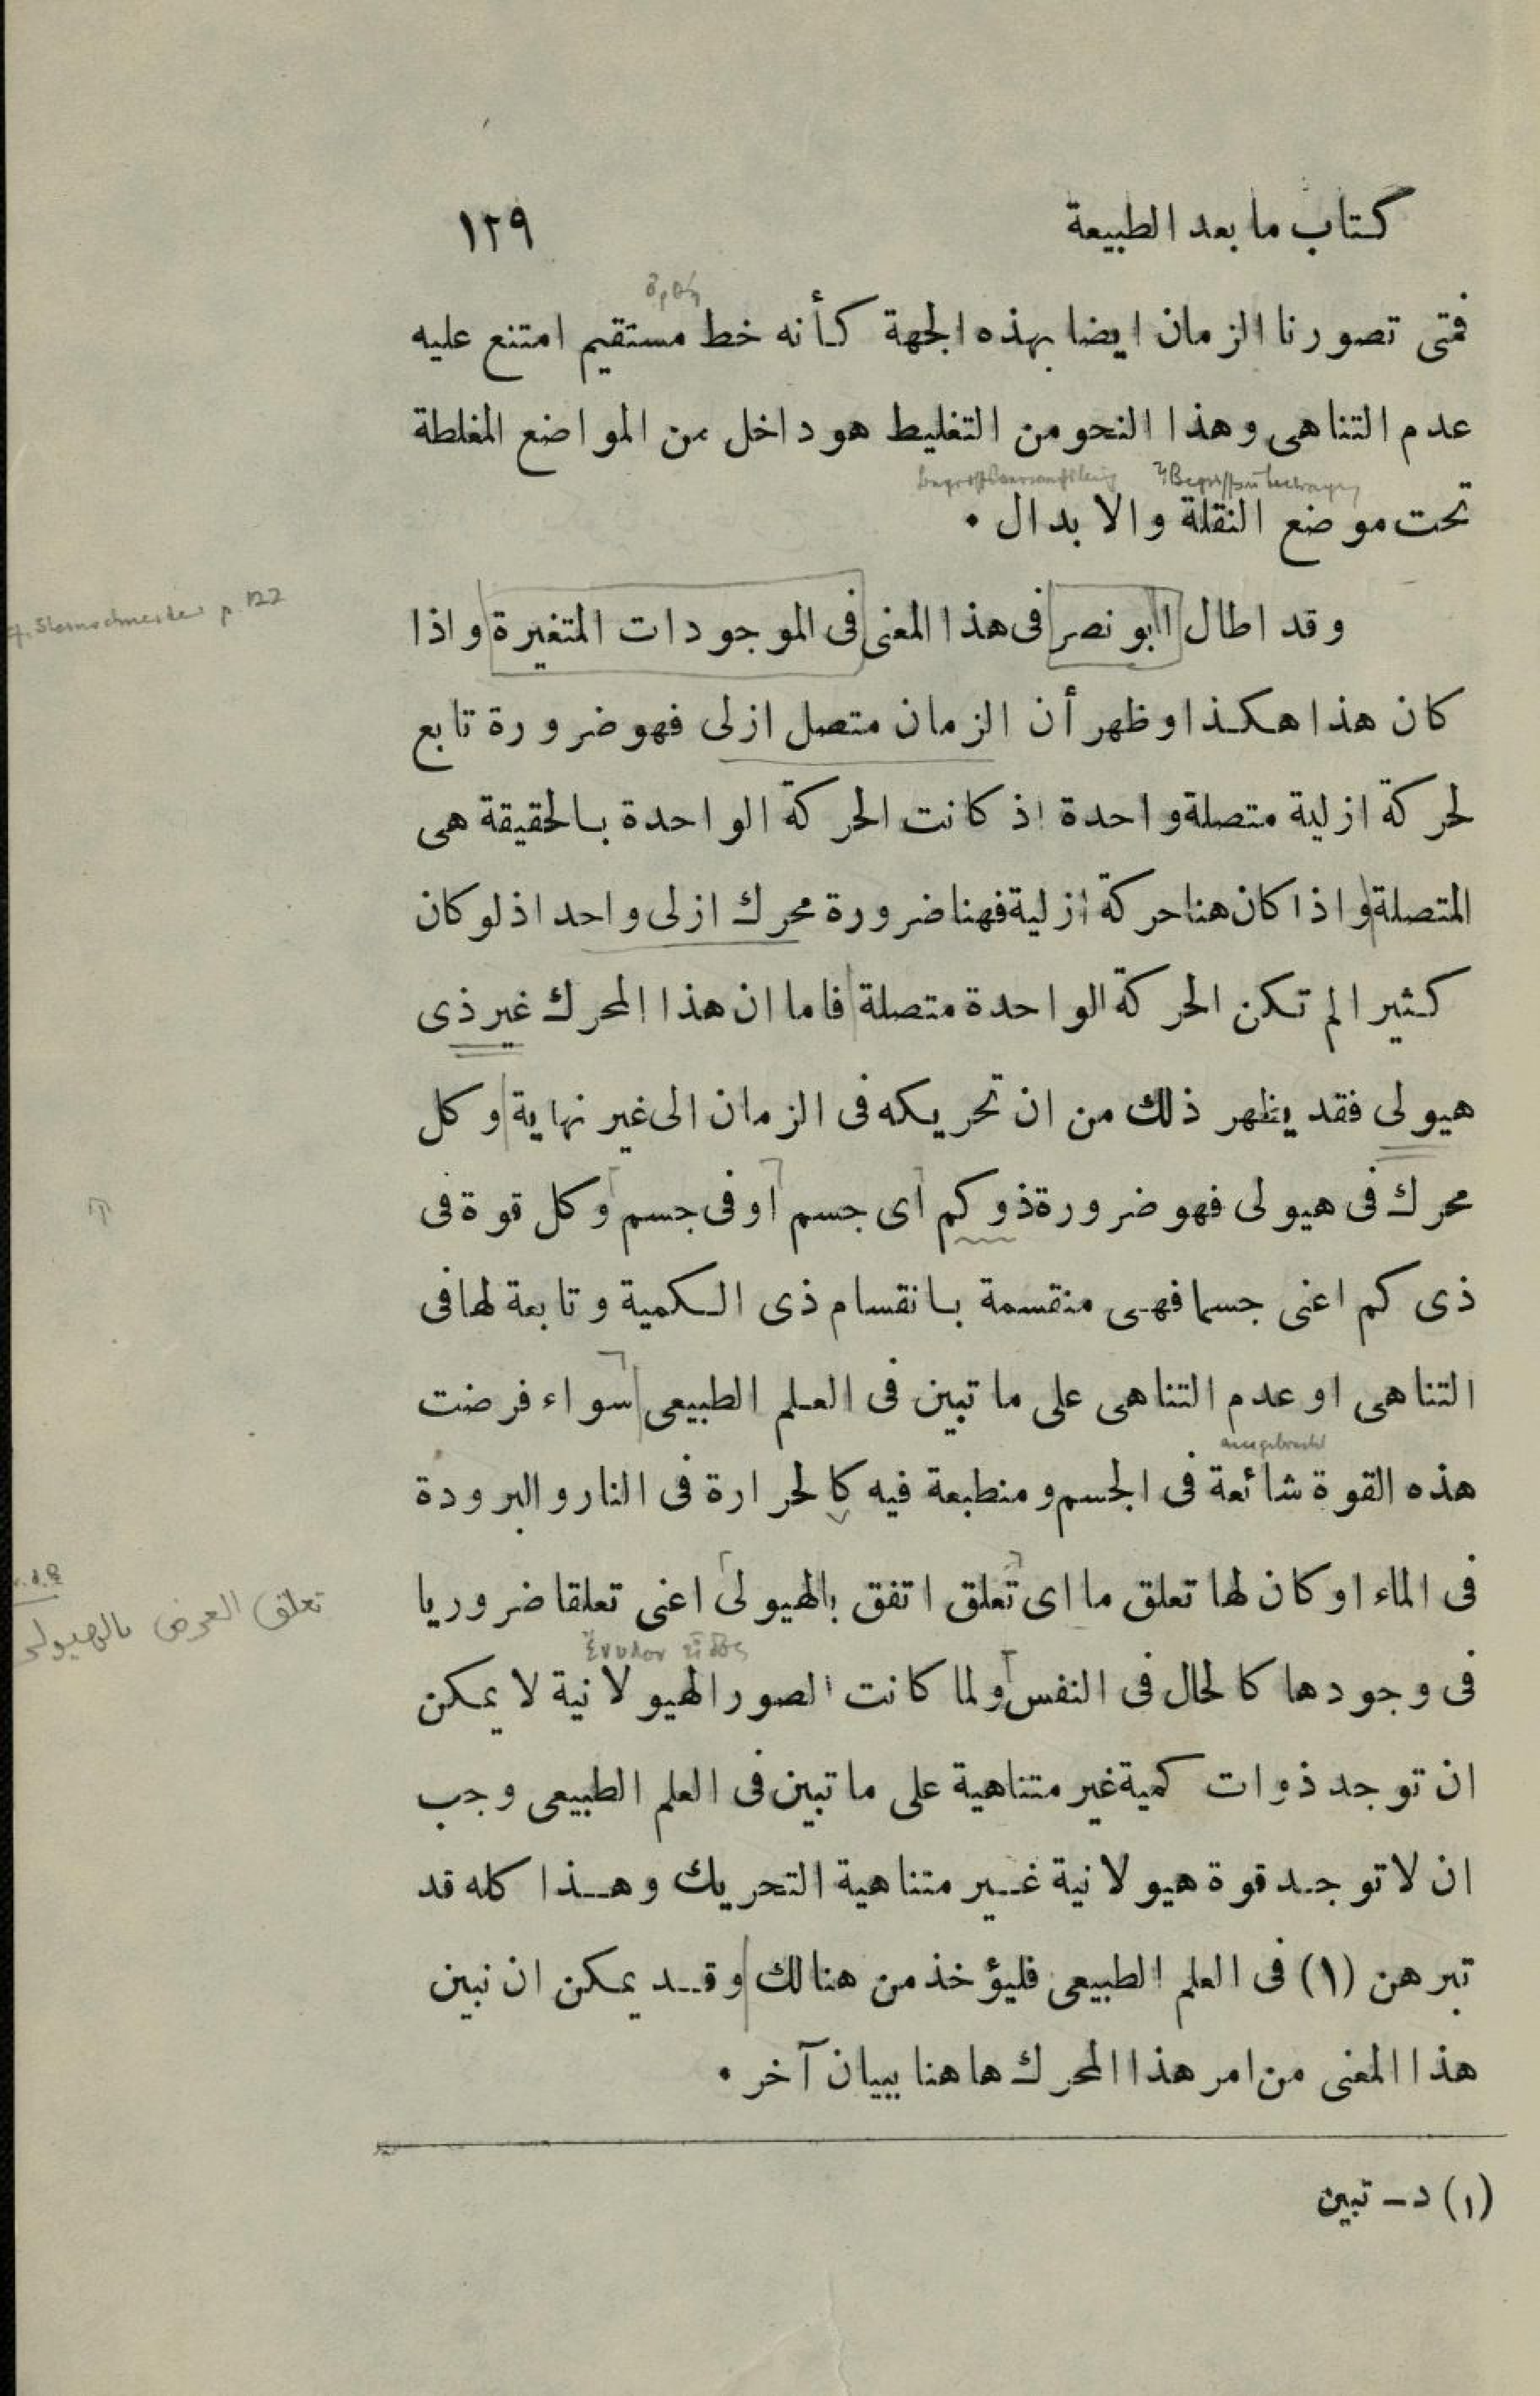 كتاب ما بعد الطبيعة ١٢٩
ὀρθή
فمتى تصورنا الزمان ايضا بهذه الجهة كأنه خط مستقيم امتنع عليه
عدم التناهى وهذا النحو من التغليط هو داخل من المواضع المغلطة
تحت موضع النقلة والابدال •
Steinschneider p. 122
وقد اطال ابو نصر فى هذا المعنى فى الموجودات المتغيرة واذا
كان هذا هكذا وظهر أن الزمان متصل ازلى فهو ضرورة تابع
لحركة ازلية متصلة واحدة اذ كانت الحركة الواحدة بالحقيقة هى
المتصلة واذا كان هنا حركة ازلية فهنا ضرورة محرك ازلى واحد اذ لو كان
كثيرا لم تكن الحركة الواحدة متصلة فاما ان هذا المحرك غير ذى
هيولى فقد يظهر ذلك من ان تحريكه فى الزمان الى غير نهاية وكل
محرك فى هيولى فهو ضرورة ذو كم اى جسم او فى جسم وكل قوة فى
ذى كم اعنى جسما فهى منقسمة بانقسام ذى الكمية وتابعة لها فى
التناهى او عدم التناهى على ما تبين فى العلم الطبيعى سواء فرضت
هذه القوة شائعة فى الجسم ومنطبعة فيه كالحرارة فى النار والبرودة
فى الماء او كان لها تعلق ما اى تعلق اتفق بالهيولى اعنى تعلقا ضروريا
تعلق العرض بالهيولى
ἔνυλον εἶδος
فى وجودها كالحال فى النفس ولما كانت الصور الهيولانية لا يمكن
ان توجد ذوات كمية غير متناهية على ما تبين فى العلم الطبيعى وجب
ان لا توجد قوة هيولانية غير متناهية التحريك وهذا كله قد
تبرهن (١) فى العلم الطبيعى فليؤخذ من هنالك وقد يمكن ان نبين
هذا المعنى من امر هذا المحرك هاهنا ببيان آخر •
(١) د – تبين